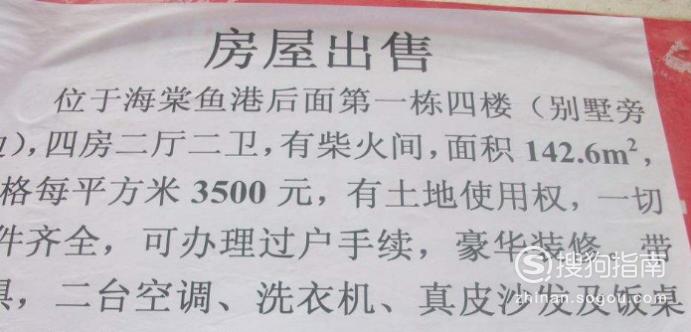 房屋出售
位于海棠鱼港后面第一栋四楼（别墅旁
边），四房二厅二卫，有柴火间，面积 142.6m²，
格每平方米 3500 元，有土地使用权，一切
件齐全，可办理过户手续，豪华装修。带
具，二台空调、洗衣机、真皮沙发及饭桌
搜狗指南
zhinan.sogou.com